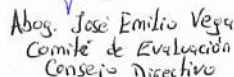 Abog. José Emilio Vega
Comité de Evaluación
Consejo Directivo